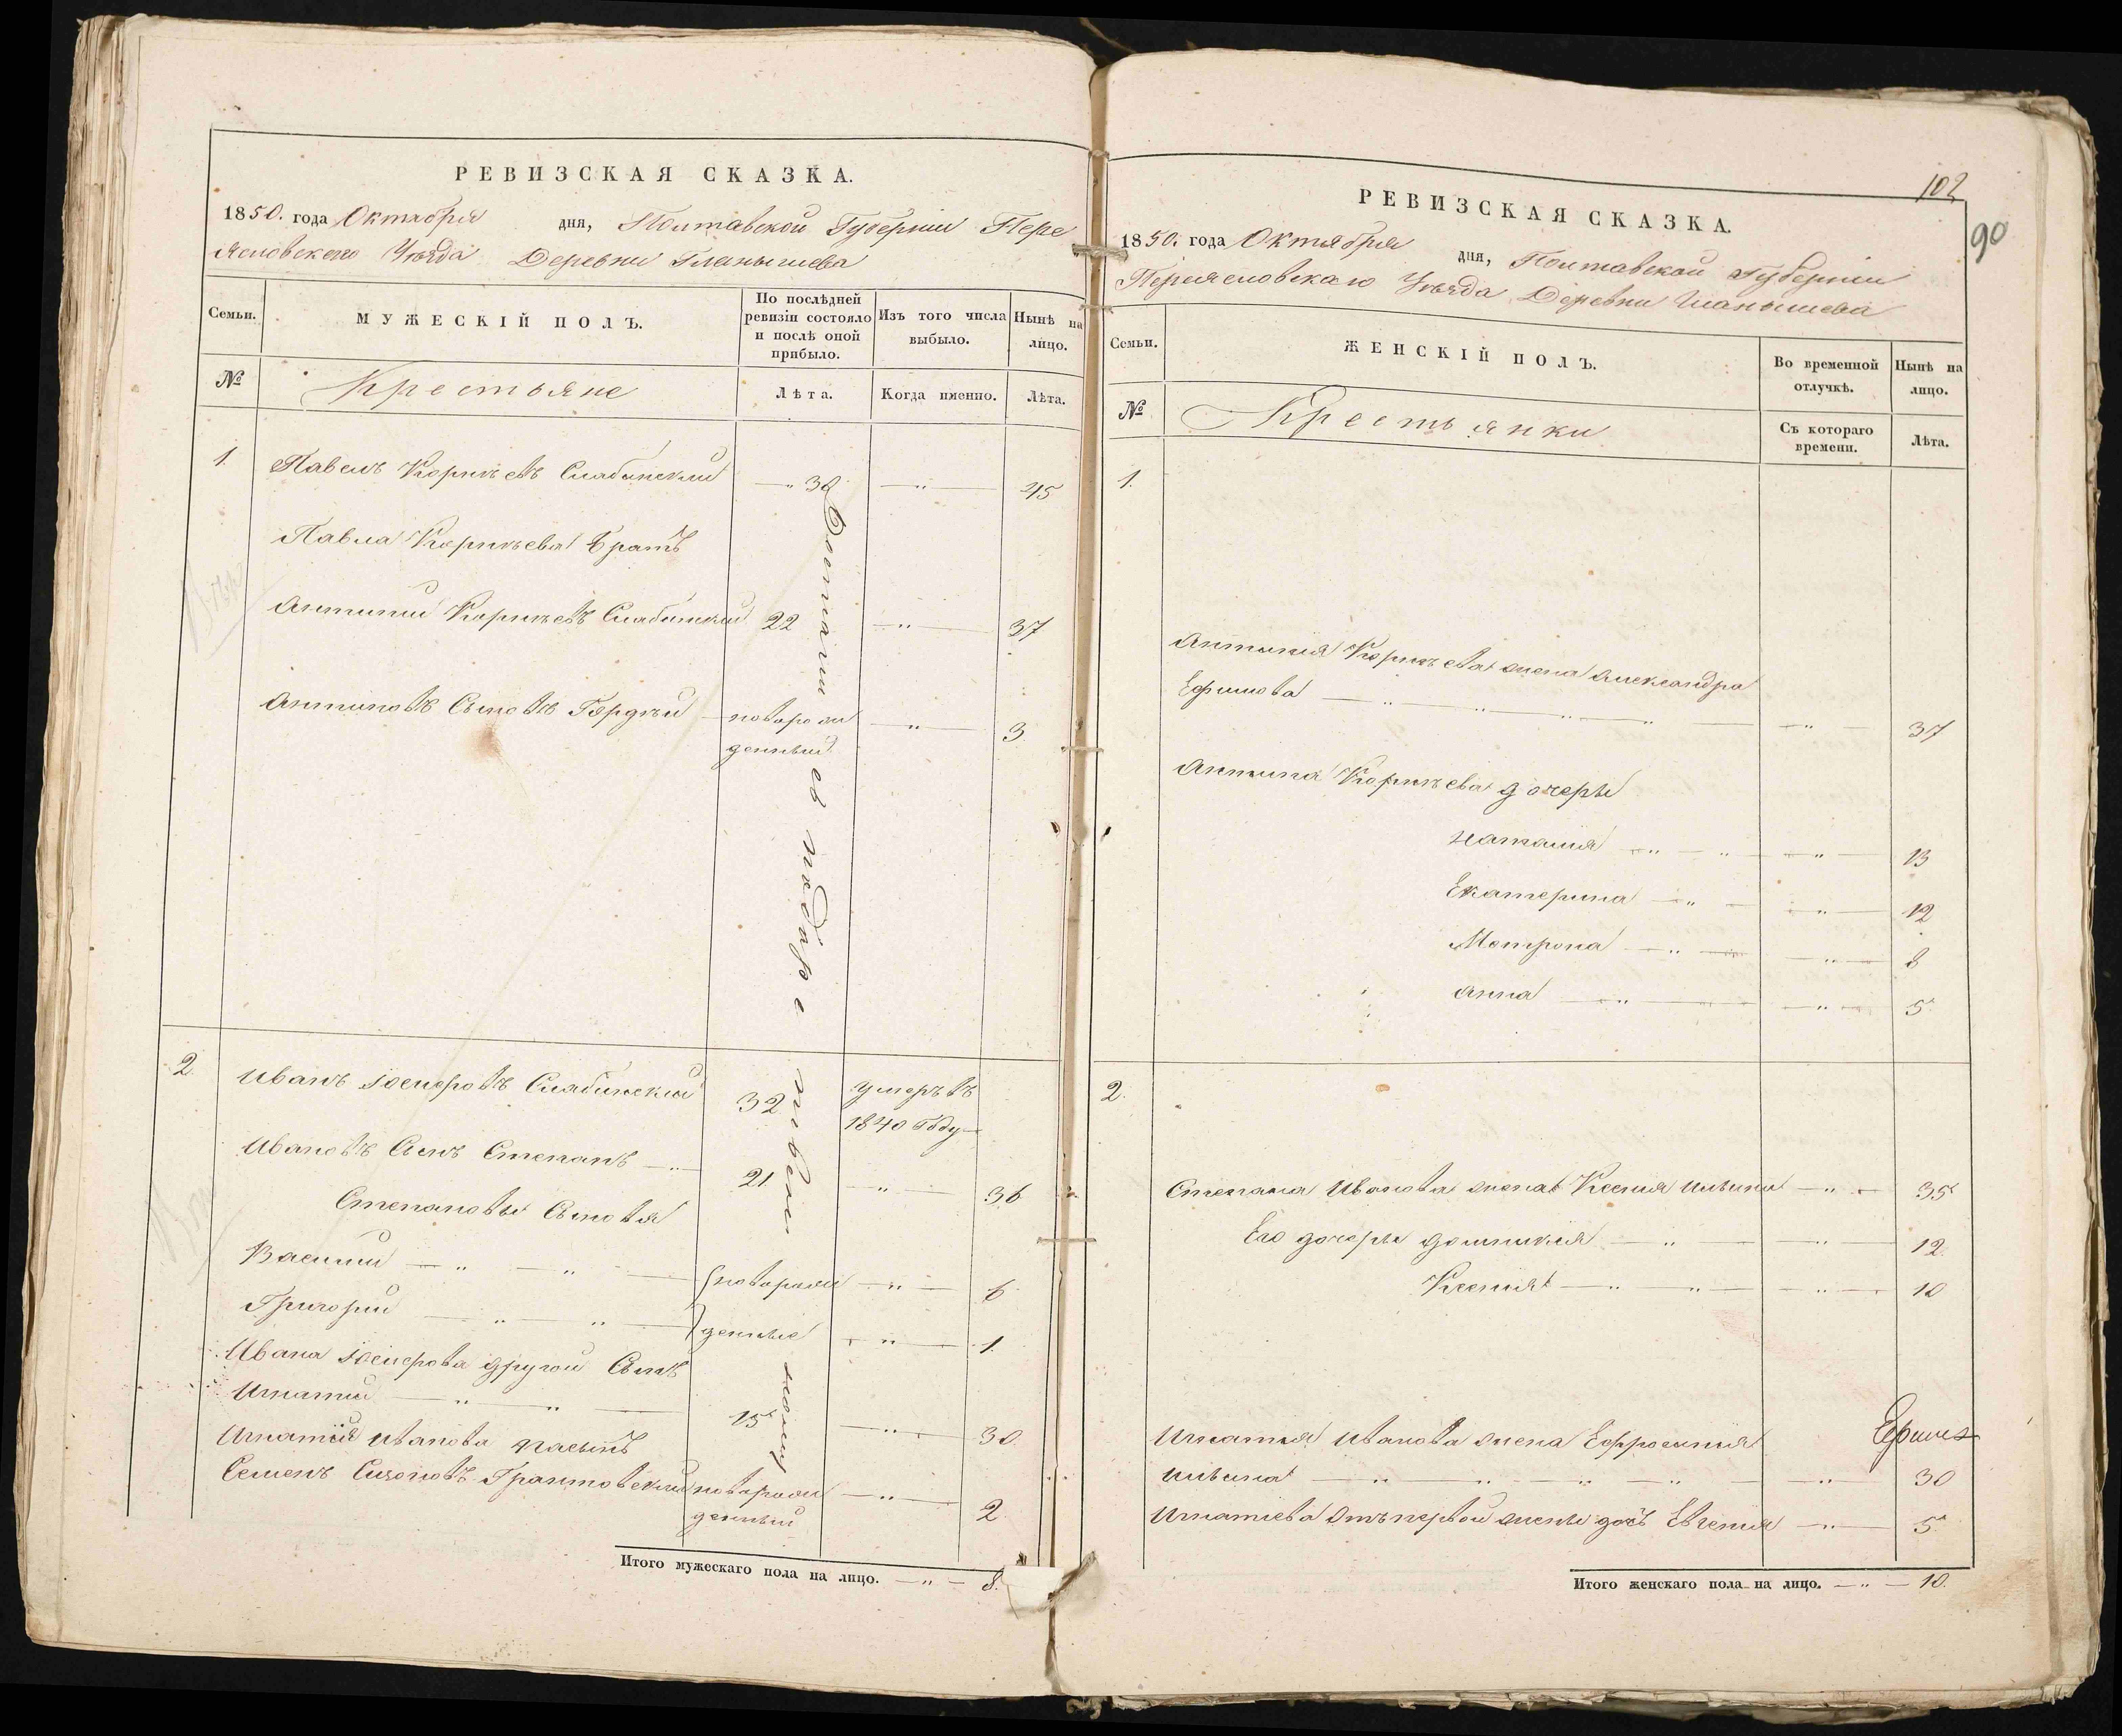 РЕВИЗСКАЯ СКАЗКА.
1850. года Октября дня, Полтавской Губерніи Пере
яславскаго Уѣзда Деревни
Семьи.
МУЖЕСКІЙ ПОЛЪ.
По послѣдней ревизіи состояло и послѣ оной прибыло.
Изъ того числа выбыло.
Нынѣ на лицо.
№
Крестьяне
Лѣта.
Когда именно.
Лѣта.
1. Павелъ Корнѣевъ Слабинский — " 30 — " — 45
Павла Корнѣева братъ
Антипий Корнѣевъ Слабинский 22 — " — 37
Антиповъ Сыновъ Гордѣй новорож — " — 3
денный
2 Иванъ Слабинский 32 умеръ въ
1840 году
Ивановъ Сынъ Степанъ — " — 21. — " — 36
Степановы Сыновья
Василий — " — " — новорож — " — 6
Григорий — " — " — денные — " — 1.
Ивана другой Сынъ
Игнатий — " — " — 15 — " — 30
Игнатія Иванова пасынъ
Семенъ новорож — " — 2
денный
Итого мужескаго пола на лицо. — " — 8.
102
90
РЕВИЗСКАЯ СКАЗКА.
1850. года Октября дня, Полтавской Губерніи
Переяславскаго Уѣзда Деревни
Семьи.
ЖЕНСКІЙ ПОЛЪ.
Во временной отлучкѣ.
Нынѣ на лицо.
№
Крестьянки
Съ котораго времени.
Лѣта.
1.
Антипия Корнѣева жена Александра
Ефимова — " — " — " — " — " — 37
Антипа Корнѣева дочеры
Наталия — " — " — " — 13
Екатерина — " — " — 12
Мотрона — " — " — 8
Анна — " — " — 5
2.
Степана Иванова жена Ксения — " — 35
Его дочеры — " — " — 12
Ксения — " — " — " — 10
Игнатия Иванова жена Ефросиния
— " — " — " — " — " — 30
Игнатиева отъ первой жены дочь Евгения — " — 5
Итого женскаго пола на лицо. — " — 10.